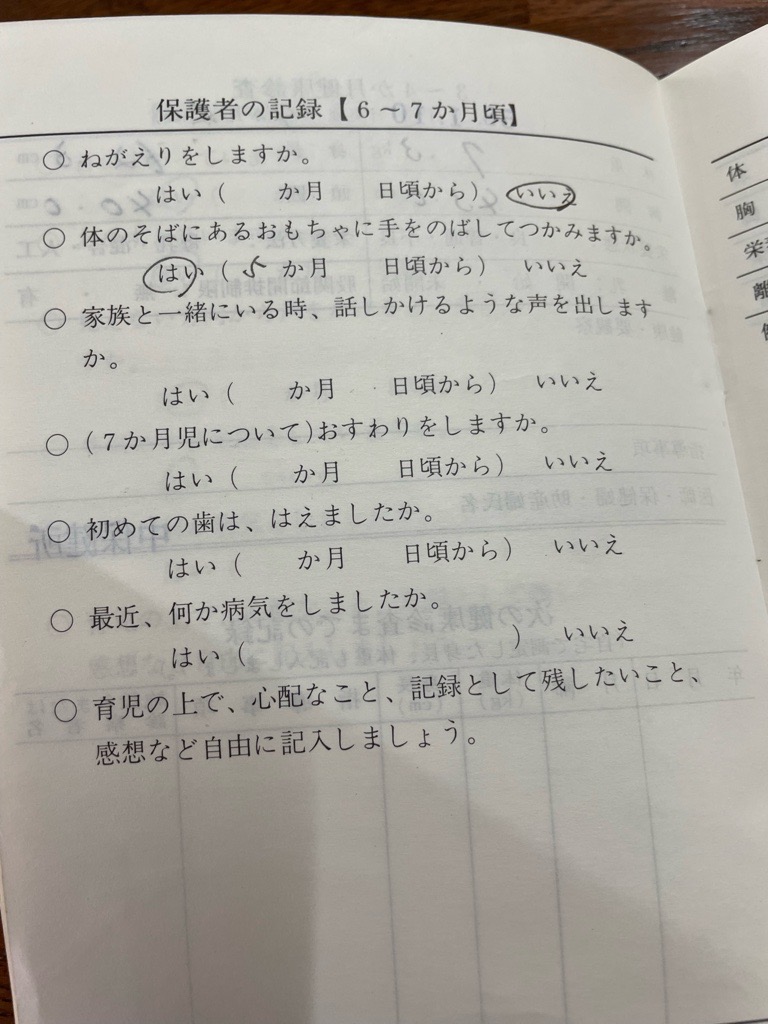 保護者の記録【6～7か月頃】
○ ねがえりをしますか。
はい（　　か月　　日頃から）　いいえ
○ 体のそばにあるおもちゃに手をのばしてつかみますか。
はい（ 5 か月　　日頃から）　いいえ
○ 家族と一緒にいる時、話しかけるような声を出します
か。
はい（　　か月　　日頃から）　いいえ
○ (7か月児について)おすわりをしますか。
はい（　　か月　　日頃から）　いいえ
○ 初めての歯は、はえましたか。
はい（　　か月　　日頃から）　いいえ
○ 最近、何か病気をしましたか。
はい（　　　　　　　　　　）　いいえ
○ 育児の上で、心配なこと、記録として残したいこと、
感想など自由に記入しましょう。
体
胸
栄
離